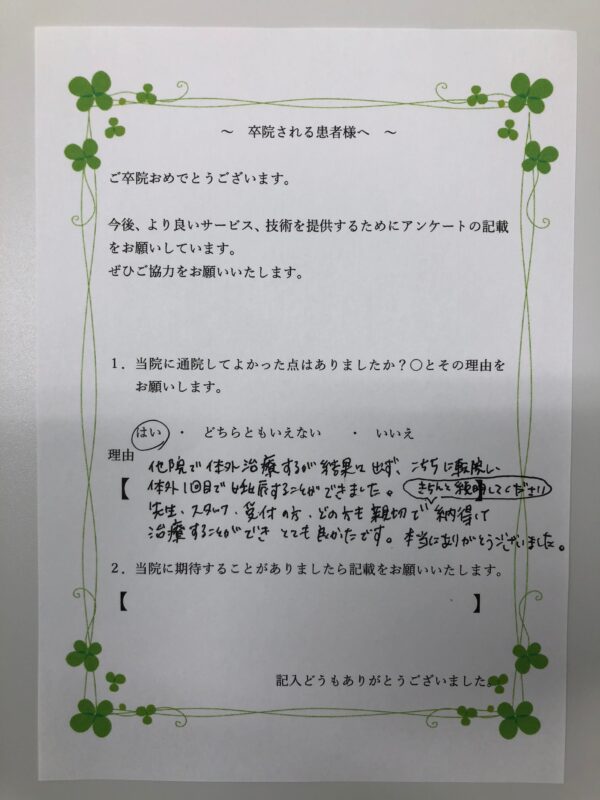 ～　卒院される患者様へ　～
ご卒院おめでとうございます。
今後、より良いサービス、技術を提供するためにアンケートの記載
をお願いしています。
ぜひご協力をお願いいたします。
１．当院に通院してよかった点はありましたか？〇とその理由を
お願いします。
はい　・　どちらともいえない　・　いいえ
理由
他院で体外治療するが結果は出ず、こちらに転院し
【体外1回目で妊娠することができました。 きちんと説明してくださり】
先生・スタッフ・受付の方・どの方も親切で納得して
治療することができとても良かったです。本当にありがとうございました。
２．当院に期待することがありましたら記載をお願いいたします。
【　】
記入どうもありがとうございました。